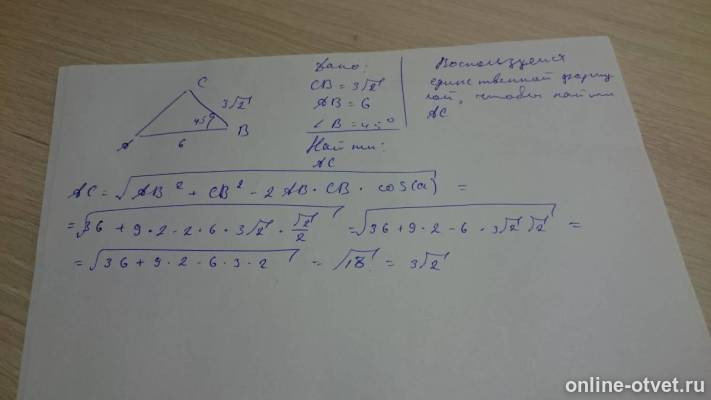 C
3√2
45°
A
6
B
Дано:
CB = 3√2
AB = 6
∠B = 45°
Найти:
AC
Воспользуемся
единственной форму
лой, чтобы найти
AC
AC = √(AB² + CB² - 2AB · CB · cos(a)) =
= √(36 + 9 · 2 - 2 · 6 · 3√2 · √2/2) = √(36 + 9 · 2 - 6 · 3√2 √2) =
= √(36 + 9 · 2 - 6 · 3 · 2) = √18 = 3√2
online-otvet.ru